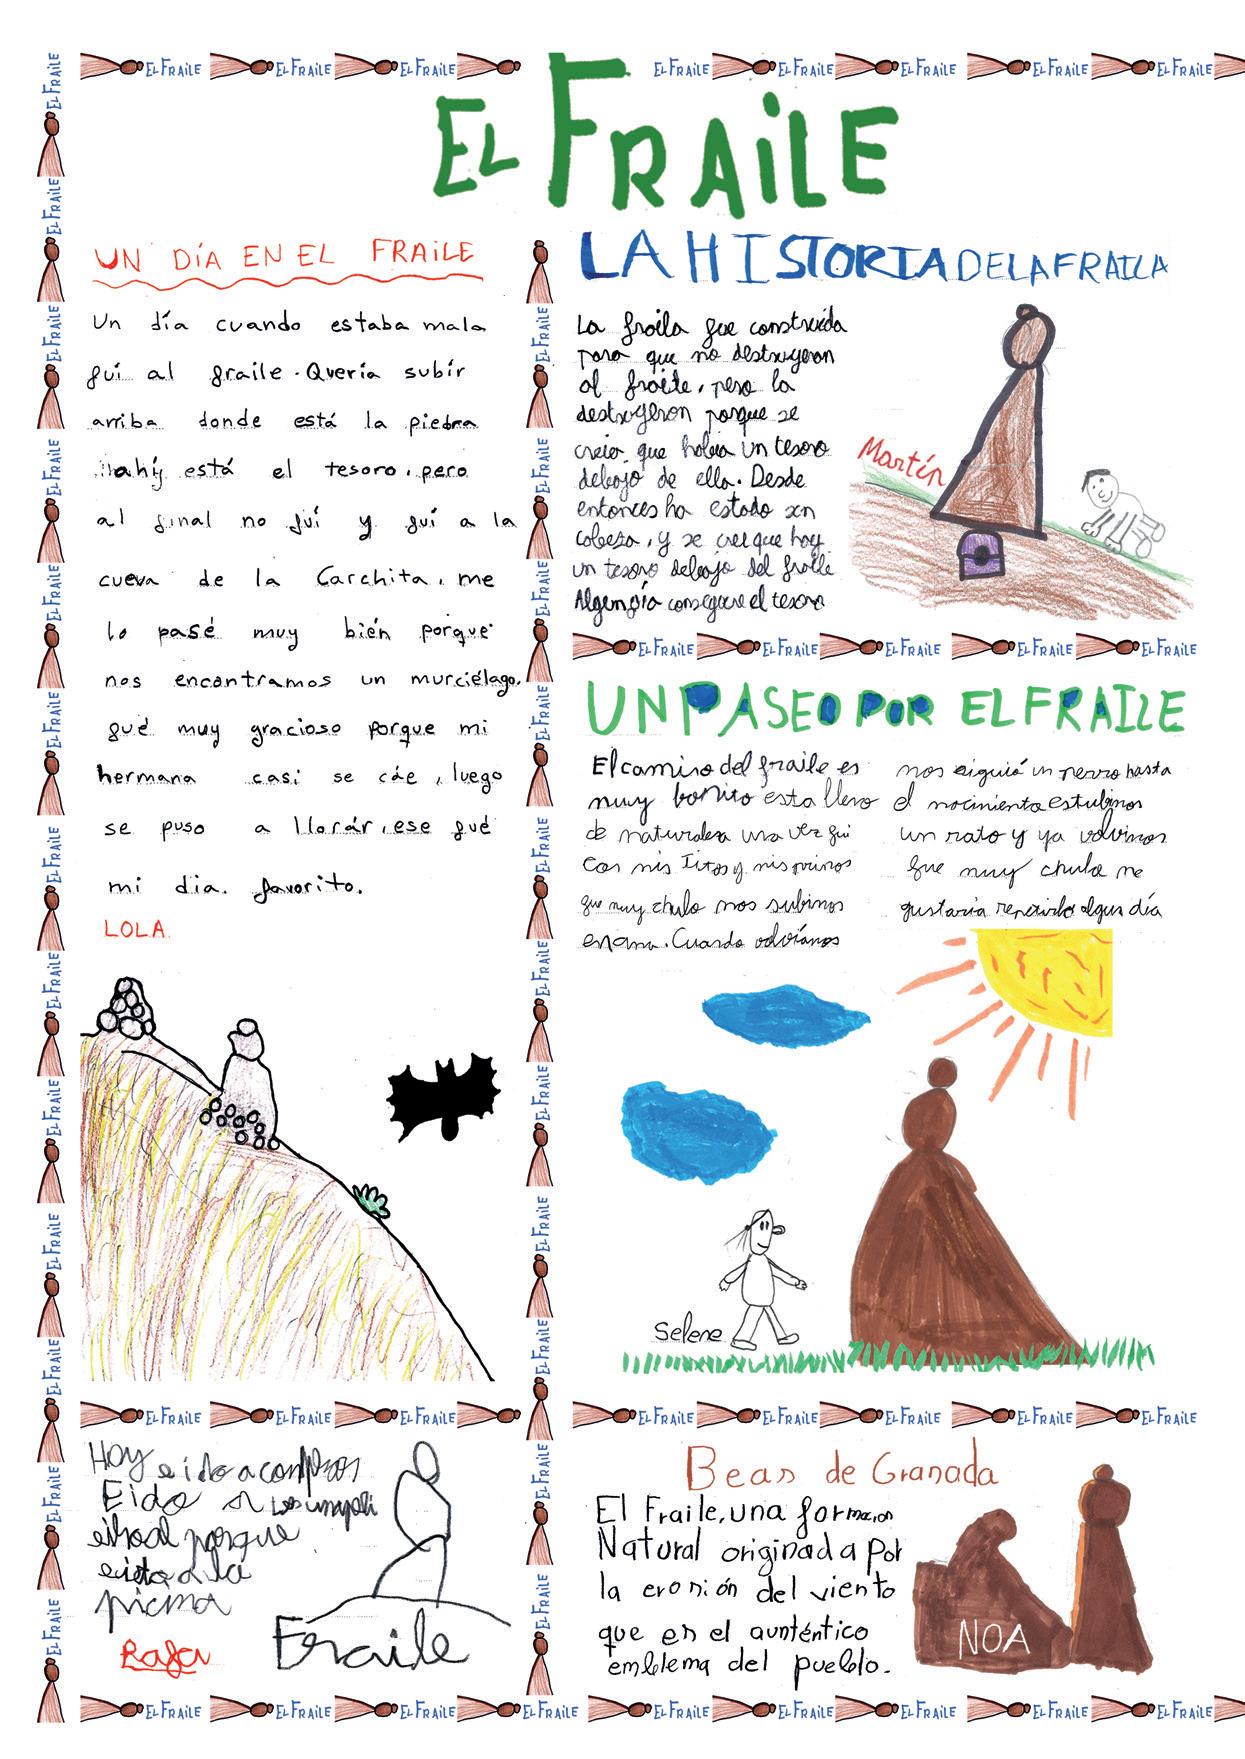 EL FRAILE
UN DÍA EN EL FRAILE
Un día cuando estaba mala
fuí al fraile. Quería subir
arriba donde está la piedra
ahí está el tesoro, pero
al final no fuí y fuí a la
cueva de la Carchita, me
lo pasé muy bién porque
nos encontramos un murciélago.
fué muy gracioso porque mi
hermana casi se cáe, luego
se puso a llorár, ese fué
mi dia. favorito.
LOLA
LA HISTORIA DE LA FRAILA
La fraila fue construida
para que no destruyeran
al fraile, pero la
destruyeron porque se
creia que habia un tesoro
debajo de ella. Desde
entonces ha estado sin
cabeza, y se cree que hay
un tesoro debajo del fraile
Algún día conseguire el tesoro
Martín
UN PASEO POR EL FRAILE
El camino del fraile es
muy bonito esta lleno
de naturaleza una vez fui
con mis Titos y mis primos
fue muy chulo nos subimos
encima. Cuando volvíamos
nos siguió un perro hasta
el nacimiento estubimos
un rato y ya volvimos
fue muy chulo me
gustaria repetirlo algun día
Selene
Hoy e ido a
Eido a
porque
a la
Rafa
Fraile
Beas de Granada
El Fraile, una formacion
Natural originada por
la erosión del viento
que es el aunténtico
emblema del pueblo.
NOA